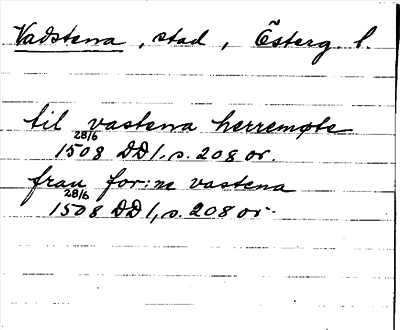 Vadstena, stad, Österg. l.
til vastena herremøte
28/6
1508 DD 1, s. 208 or.
fran for:ne vastena
28/6
1508 DD 1, s. 208 or.